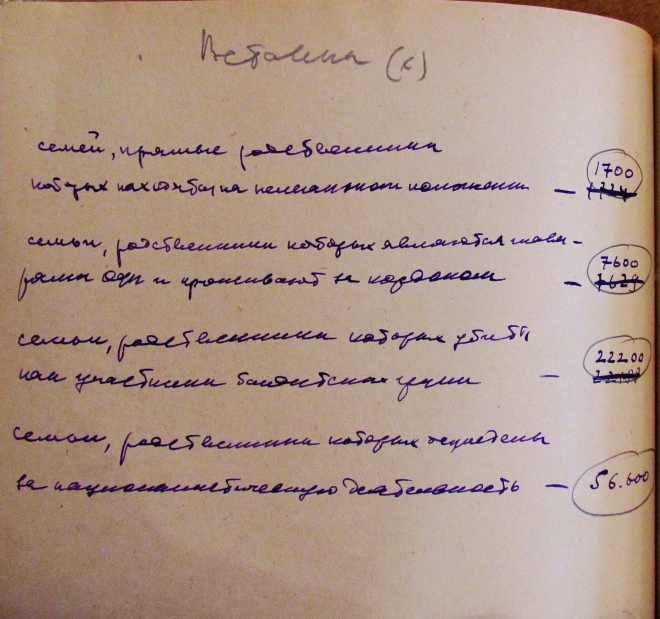 Вставка (к)
семей, прямые родственники
1700
которых находятся на нелегальном положении —
семьи, родственники которых являются глава-
7600
рями ОУН и проживают за кордоном — 7629
семьи, родственники которых убиты
22200
как участники бандитских групп —
семьи, родственники которых осуждены
за националистическую деятельность — 56.600